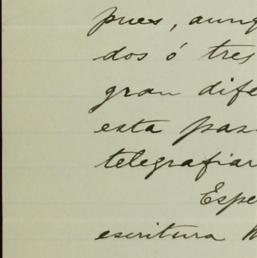 pues, aunq
dos ó tres
gran dife
esta pas
telegrafiar
Espe
escritura